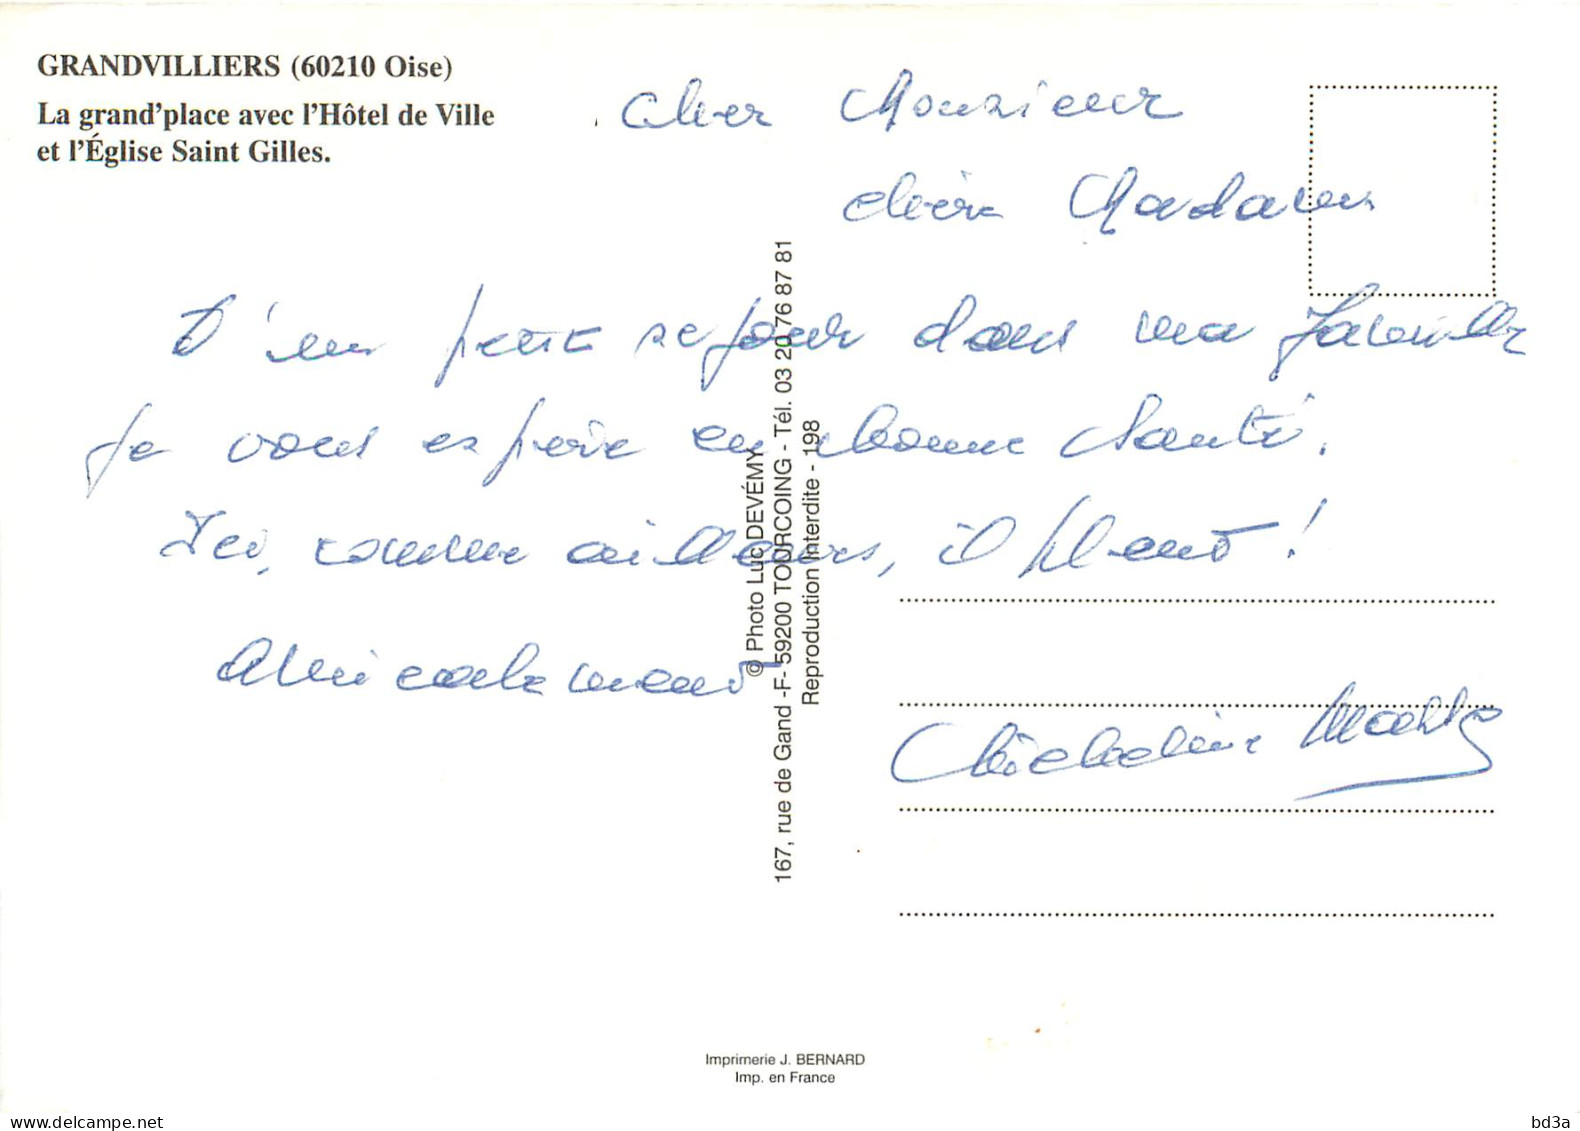 GRANDVILLIERS (60210 Oise)
La grand'place avec l'Hôtel de Ville
et l'Église Saint Gilles.
Cher Monsieur
chère Madame
D'un petit séjour dans ma famille
Je vous espère en bonne santé.
Ici, comme ailleurs, il pleut !
Amicalement
© Photo Luc DEVÉMY
167, rue de Gand -F- 59200 TOURCOING - Tél. 03 20 76 87 81
Reproduction Interdite - 198
Imprimerie J. BERNARD
Imp. en France
www.delcampe.net
bd3a